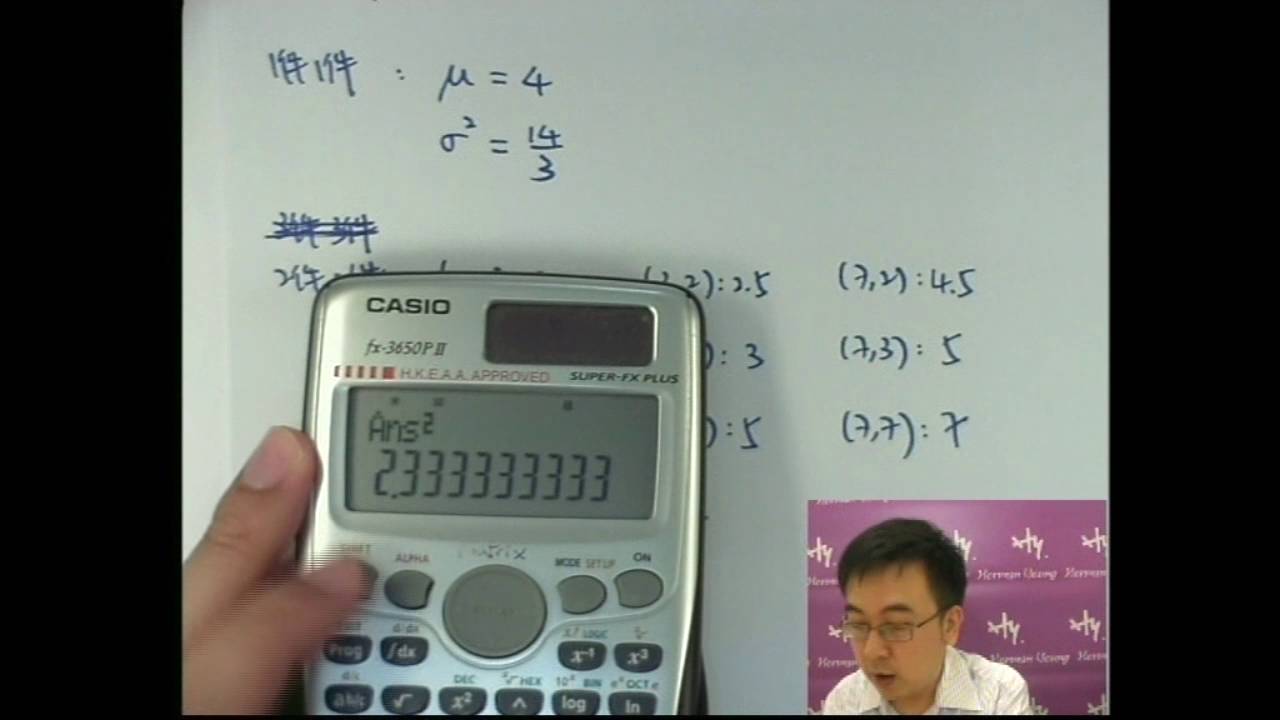 1件1件 : μ = 4
σ² = 14/3
3件3件
2件
2) : 2.5
(7,2) : 4.5
) : 3
(7,3) : 5
) : 5
(7,7) : 7
CASIO
fx-3650P II
H.K.E.A.A. APPROVED
SUPER-FX PLUS
Ans²
2.333333333
SHIFT
ALPHA
MODE SETUP
ON
d/dx
x! LOGIC
Prog
∫dx
x⁻¹
x³
d/c
DEC
HEX
BIN
OCT
ab/c
√
x²
^
log
ln
Herman Yeung
Herman Yeung
Herman Yeung